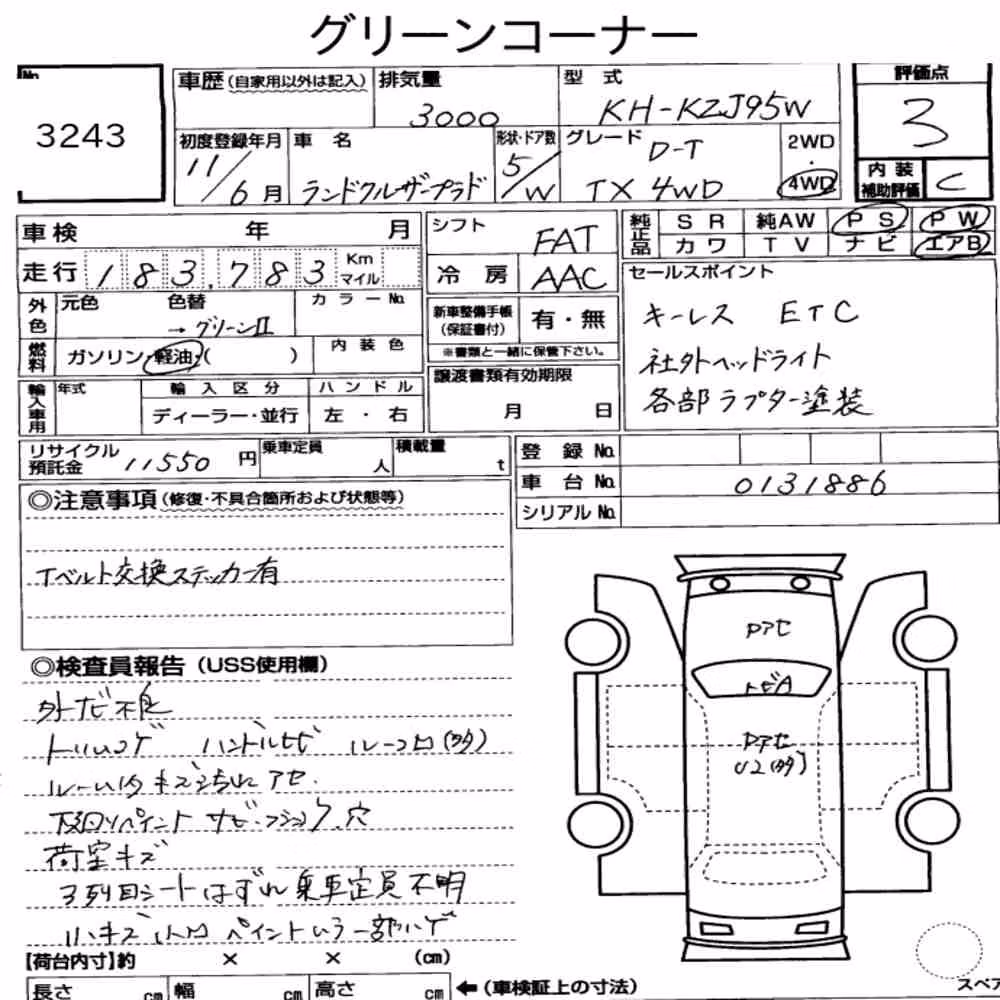 グリーンコーナー
No.
3243
車歴(自家用以外は記入)
排気量
3000
型 式
KH-KZJ95W
評価点
3
初度登録年月
11/6月
車 名
ランドクルザープラド
形状・ドア数
5/W
グレード
D-T
TX 4WD
2WD
・
4WD
内装
補助評価
C
車検 年 月
シフト
FAT
純正品
SR 純AW PS PW
カワ TV ナビ エアB
走行 183,783 Km マイル
冷 房
AAC
セールスポイント
キーレス ETC
社外ヘッドライト
各部ラプター塗装
外色
元色 色替
→グリーンII
カラーNo.
新車整備手帳
(保証書付)
有・無
※書類と一緒に保管下さい。
燃料
ガソリン・軽油・( )
内装色
譲渡書類有効期限
月 日
輸入車用
年式
輸入区分
ディーラー・並行
ハンドル
左・右
リサイクル
預託金 11550 円
乗車定員
人
積載量
t
登 録 No.
車 台 No. 0131886
シリアル No.
◎注意事項(修復・不具合箇所および状態等)
Tベルト交換ステッカー有
◎検査員報告(USS使用欄)
外ナビ不良
ルーム内キズ汚れ アセ.
下回りペイント サビ.フック,穴
荷室キズ
3列目シートはずれ乗車定員不明
小キズ 凹 ペイントムラ一部ハゲ
Pアセ
トビA
Pアセ
U2(多)
【荷台内寸】約 × × (cm)
長さ cm 幅 cm 高さ cm
←(車検証上の寸法)
スペア